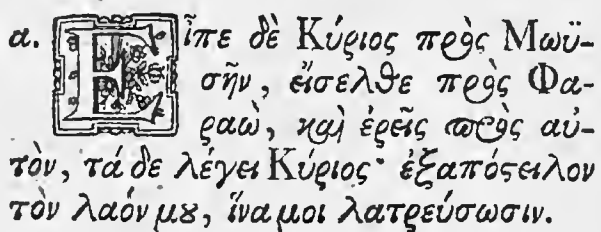 α. Εἶπε δὲ Κύριος πρὸς Μωϋ-
σῆν, εἴσελθε πρὸς Φα-
ραὼ, καὶ ἐρεῖς πρὸς αὐ-
τὸν, τά δε λέγει Κύριος· ἐξαπόςειλον
τὸν λαόν μȣ, ἵνα μοι λατρεύσωσιν.